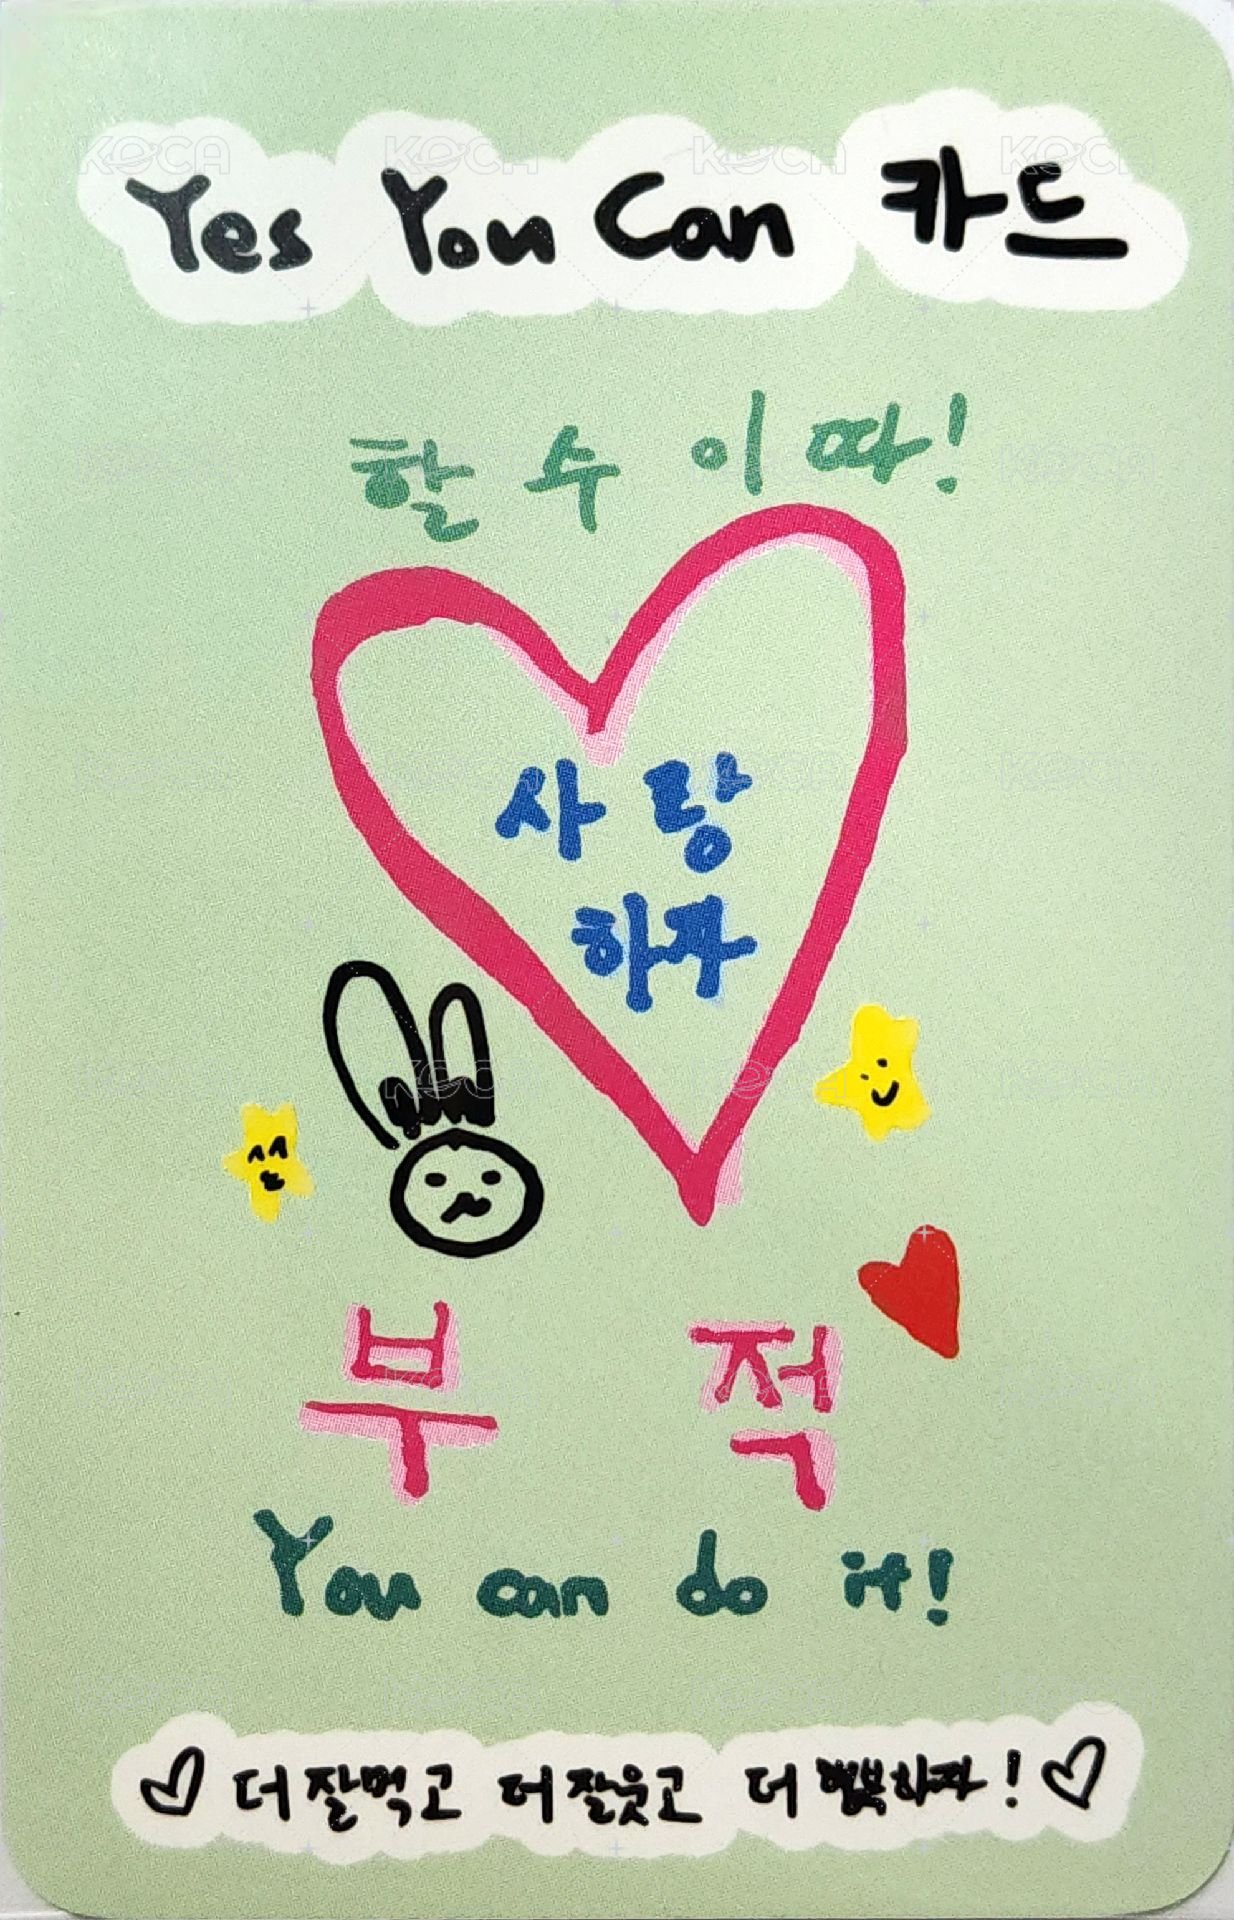 Yes You Can 카드
할 수 이따!
사랑
하자
부적
You can do it!
더 잘먹고 더 잘웃고 더 행복하자!
KOCA